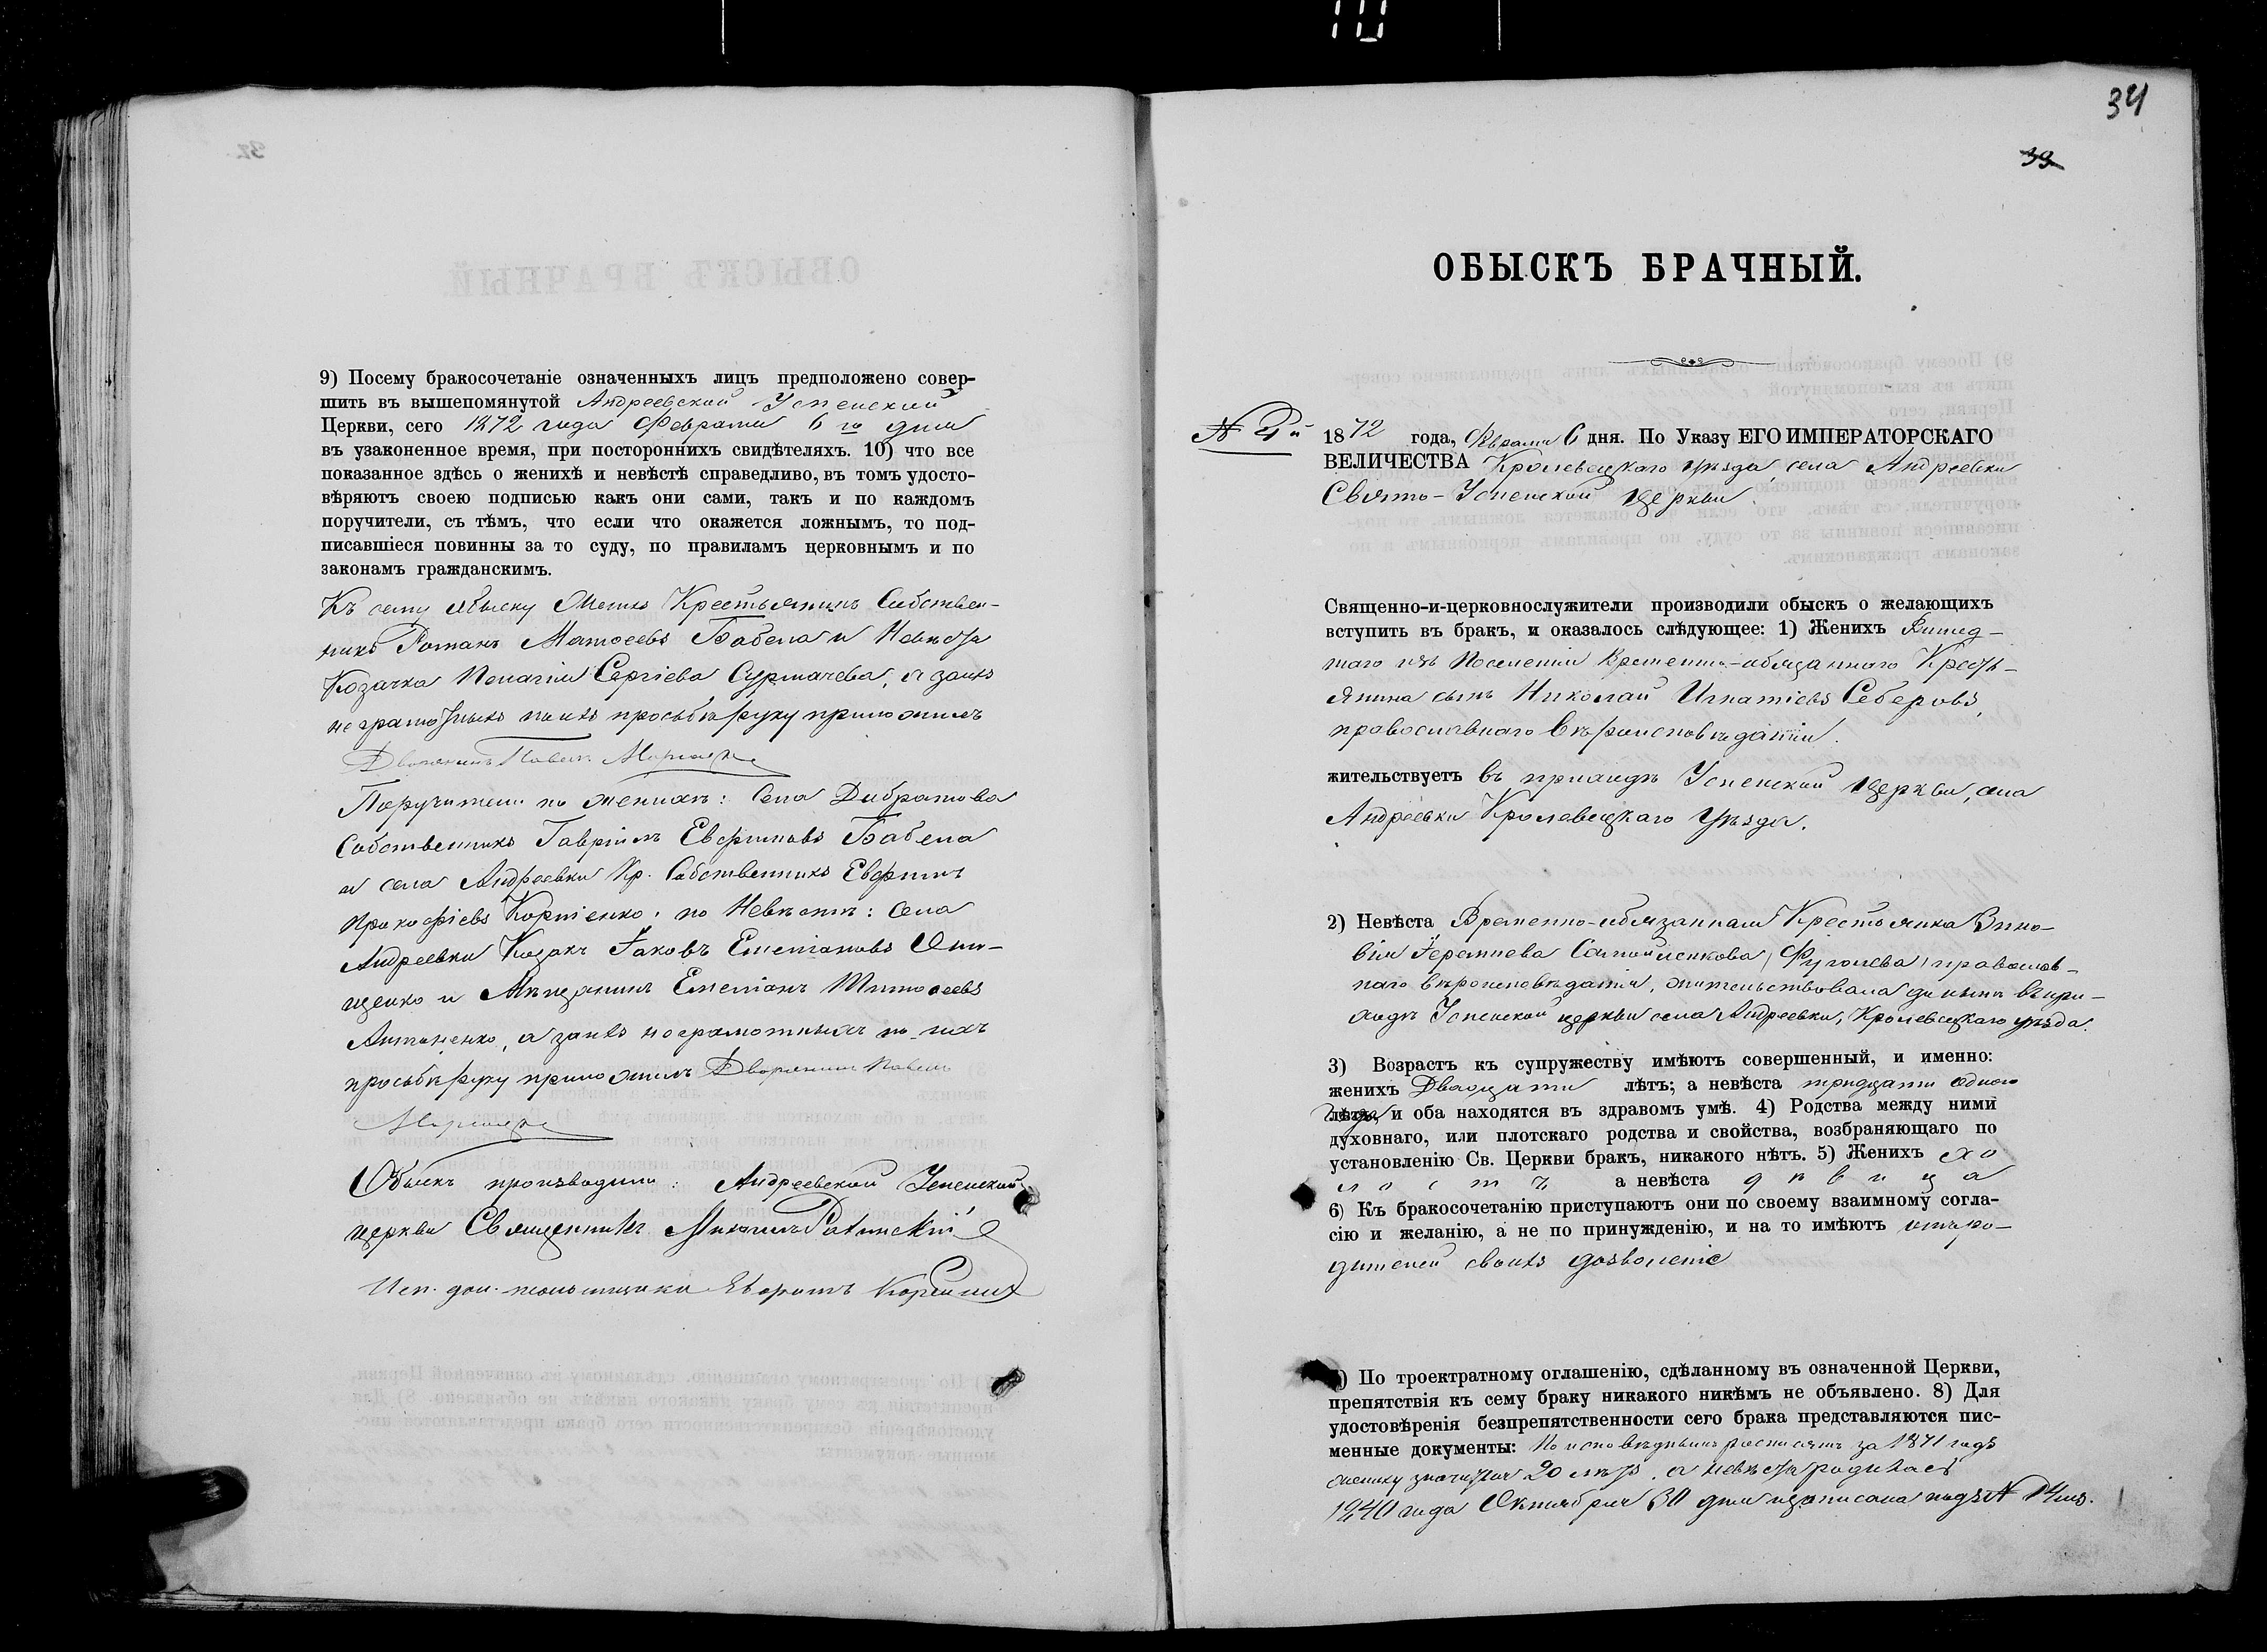 9) Посему бракосочетаніе означенныхъ лицъ предположено совер-
шить въ вышепомянутой Андреевской Успенской
Церкви, сего 1872 года Февраля 6 го дня
въ узаконенное время, при постороннихъ свидѣтеляхъ. 10) что все
показанное здѣсь о женихѣ и невѣстѣ справедливо, въ томъ удосто-
вѣряютъ своею подписью какъ они сами, такъ и по каждомъ
поручители, съ тѣмъ, что если что окажется ложнымъ, то под-
писавшіеся повинны за то суду, по правиламъ церковнымъ и по
законамъ гражданскимъ.
Къ сему обыску Женихъ Крестьянинъ Собствен-
никъ Романъ Матѳеевъ Бабела и Невѣста
Козачка Пелагія Сергіева Сурмачева, а за ихъ
неграмотныхъ по ихъ просьбѣ руку приложилъ
Дворянинъ Павелъ
Поручители по женихѣ: Села
Собственникъ Гавріилъ Евфимовъ Бабела
и села Андреевки Кр. Собственникъ Евфимъ
Прокофіевъ Корніенко; по Невѣстѣ: Села
Андреевки Козакъ Іаковъ Емеліановъ Они-
щенко и Мѣщанинъ Емеліанъ Тимоѳеевъ
Антоненко, а за ихъ неграмотныхъ по ихъ
просьбѣ руку приложилъ Дворянинъ Павелъ
Обыскъ производили: Андреевской Успенской
церкви Священникъ Михаилъ
Исп. дол. псаломщика
34
33
ОБЫСКЪ БРАЧНЫЙ.
№ 4й 1872 года, Февраля 6 дня. По Указу ЕГО ИМПЕРАТОРСКАГО
ВЕЛИЧЕСТВА Кролевецкаго уѣзда, села Андреевки
Свято-Успенской Церкви
Священно-и-церковнослужители производили обыскъ о желающихъ
вступить въ бракъ, и оказалось слѣдующее: 1) Женихъ
Временно-обязаннаго Кресть-
янина сынъ Николай Игнатіевъ Северовъ,
православнаго вѣроисповѣданія.
жительствуетъ въ приходѣ Успенской Церкви, села
Андреевки Кролевецкаго уѣзда.
2) Невѣста Временно-обязанная Крестьянка Зино-
вія Іереміева Самойленкова православ-
наго вѣроисповѣданія, жительствовала до нынѣ въ при-
ходѣ Успенской церкви села Андреевки, Кролевецкаго уѣзда.
3) Возрастъ къ супружеству имѣютъ совершенный, и именно:
женихъ Двадцати лѣтъ; а невѣста тридцати одного
года и оба находятся въ здравомъ умѣ. 4) Родства между ними
духовнаго, или плотскаго родства и свойства, возбраняющаго по
установленію Св. Церкви бракъ, никакого нѣтъ. 5) Женихъ хо
лостъ а невѣста дѣвица
6) Къ бракосочетанію приступаютъ они по своему взаимному согла-
сію и желанію, а не по принужденію, и на то имѣютъ отъ ро-
дителей своихъ дозволеніе
) По троектратному оглашенію, сдѣланному въ означенной Церкви,
препятствія къ сему браку никакого никѣмъ не объявлено. 8) Для
удостовѣренія безпрепятственности сего брака представляются пис-
менные документы: По исповѣднымъ росписямъ за 1871 годъ
жениху значится 20 лѣтъ, а невѣста родилась
1840 года Октября 30 дня и записана подъ №